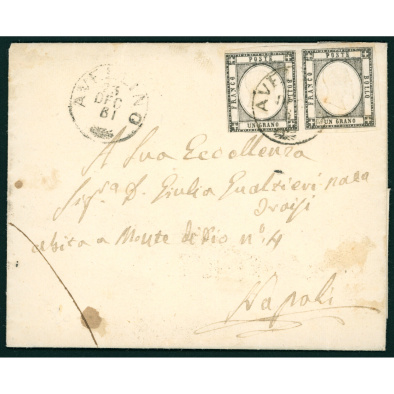 AVELLINO
23
DEC
61
POSTE
FRANCO
BOLLO
UN GRANO
AVE
POSTE
FRANCO
BOLLO
UN GRANO
A Sua Eccellenza
Sig.ra D. Giulia Gualtieri
abita a Monte di Dio n.º 4
Napoli